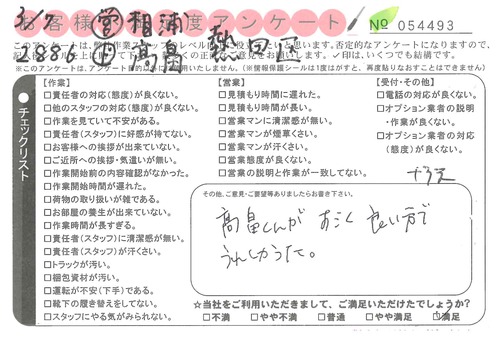 3/7 営 相浦
お客様満足度アンケート № 054493
2886 田 高畠 懇田
このアンケートは、
※このアンケートは、
(※簡報保護シールは1度はがすと、再度貼りなおすことはできません)
チェックリスト
【作業】
□責任者の対応(態度)が良くない。
□他のスタッフの対応(態度)が良くない。
□作業を見ていて不安がある。
□責任者(スタッフ)に好感が持てない。
□お客様への挨拶が出来ていない。
□ご近所への挨拶・気遣いが無い。
□作業開始前の内容確認がなかった。
□作業開始時間が遅れた。
□荷物の取り扱いが雑である。
□お部屋の養生が出来ていない。
□作業時間が長すぎる。
□責任者(スタッフ)に清潔感が無い。
□責任者(スタッフ)が汗くさい。
□トラックが汚い。
□梱包資材が汚い。
□運転が不安(下手)である。
□靴下の履き替えをしてない。
□スタッフにやる気がみられない。
【営業】
□見積もり時間に遅れた。
□見積もり時間が長い。
□営業マンに清潔感が無い。
□営業マンが煙草くさい。
□営業マンが汗くさい。
□営業態度が良くない。
□営業の説明と作業が一致してない。
【受付・その他】
□電話の対応が良くない。
□オプション業者の説明
・作業が良くない。
□オプション業者の対応
(態度)が良くない。
その他、ご意見・ご要望等ありましたらお書き下さい。
高畠くんが すごく 良い方で
うれしかった。
☆当社をご利用いただきまして、ご満足いただけたでしょうか?
□不満 □やや不満 □普通 □やや満足 ☑満足